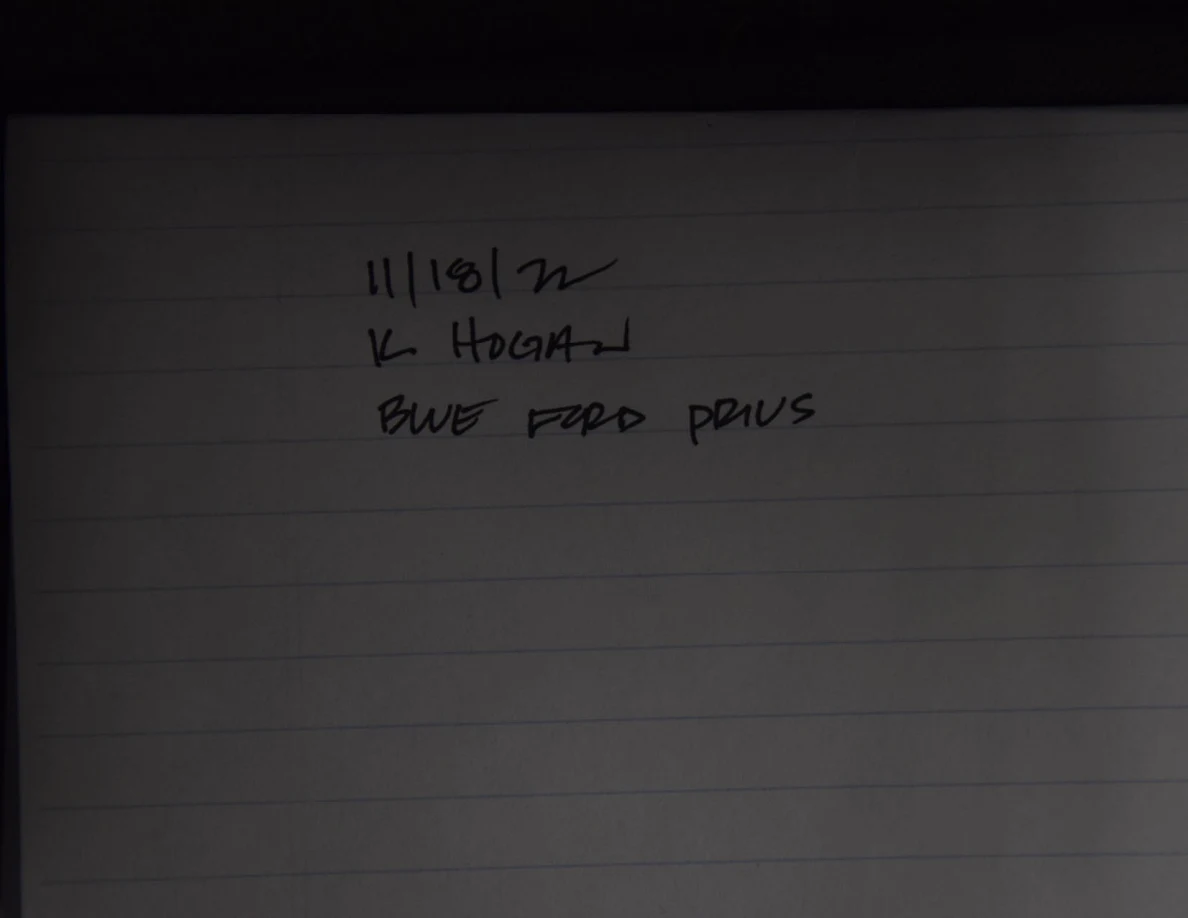 11/18/22
K HOGAN
BLUE FORD PRIUS